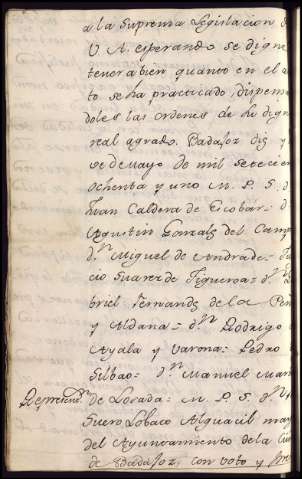 a la Suprema Legislacion d
V. A. esperando se digne
tener a bien quanto en el a
to se ha practicado, dispen
doles las ordenes de su dign
real agrado. Badajoz diez y
se de Mayo de mil setecien
ochenta y uno M. P. S. d
Juan Caldera de Escobar = d
Agustin Gonzalez del Camp
d.n Miguel de Andrade = 
cio Suarez de Figueroa = d.n
briel Fernandez de la Pe
y Aldana = d.n Rodrigo
Ayala y Varona = Pedro
Silbao = d.n Manuel Mar
de Losada = M. P. S. d.n
Suero Lobato Alguacil may
del Ayuntamiento de la Ciu
de Badajoz, con voto y